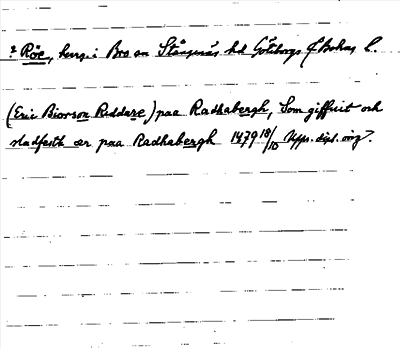 ? Röe, herrg. i Bro sn Stångenäs hd Göteborgs o Bohus l.
(Eric Biorson Reddare) paa Radhabergh, Som giffuit och
stadfesth ær paa Radhabergh 1479 18/10 Upps. dipl. orig.